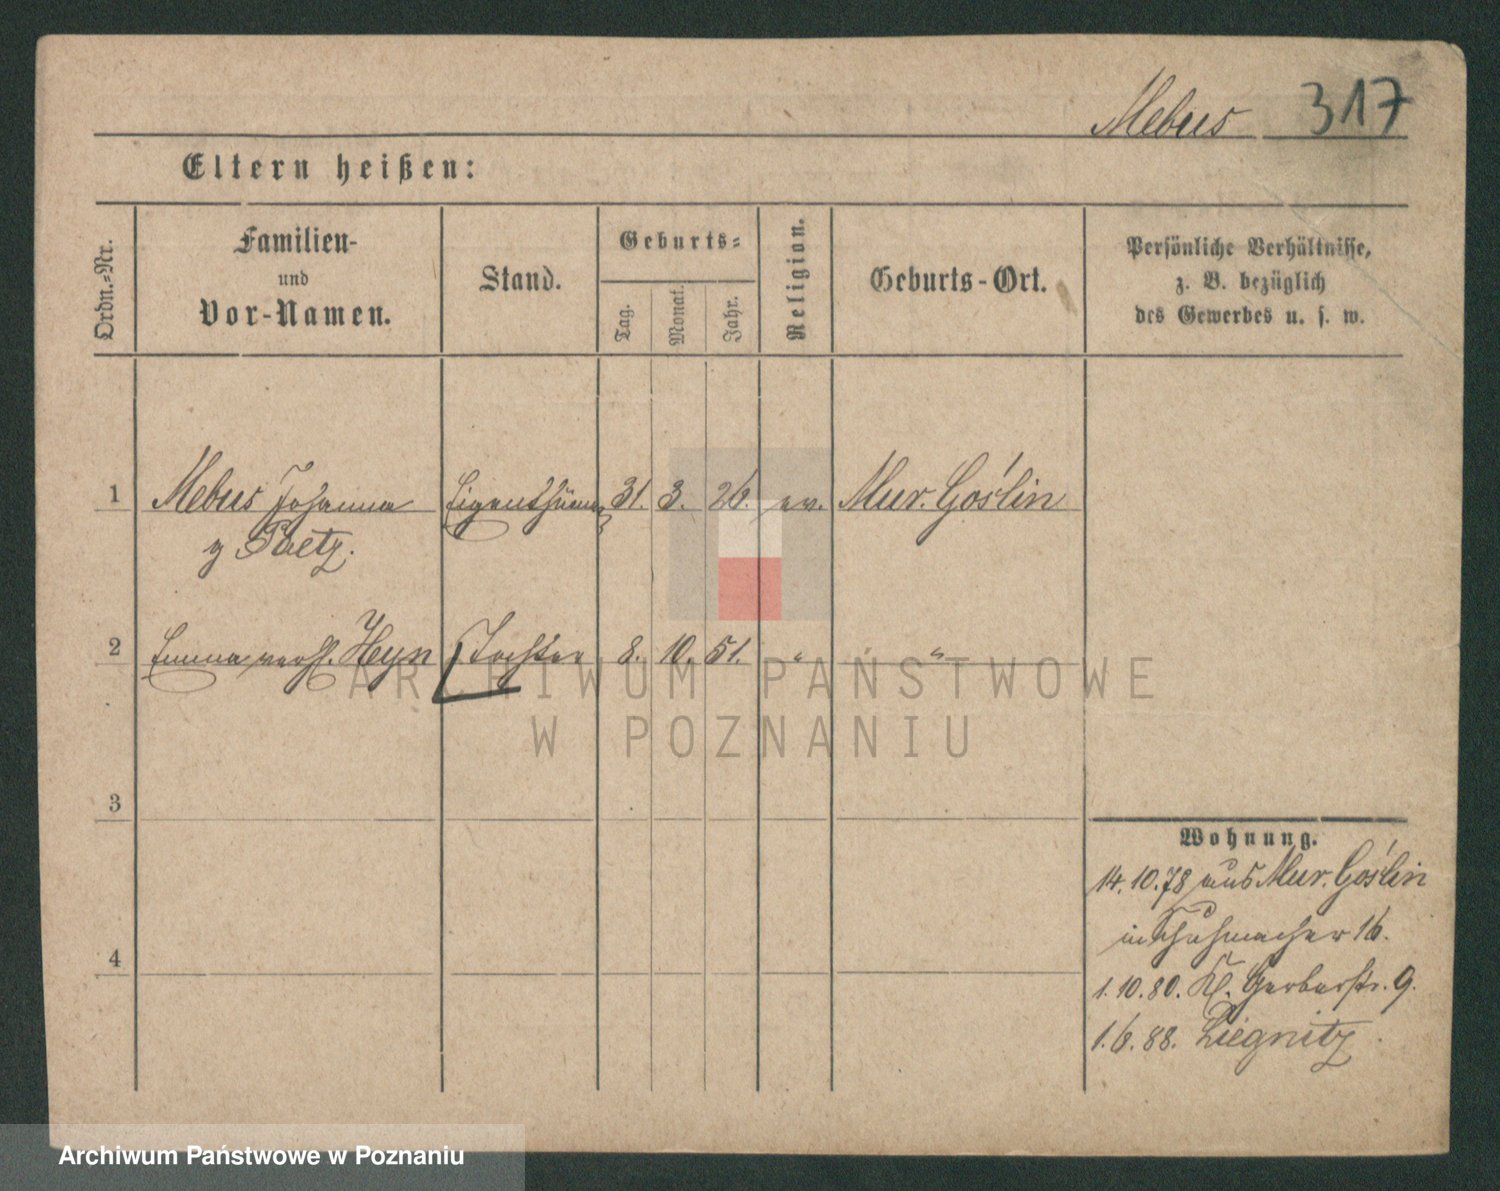 Mebus 317
Eltern heißen:
Ordn.-Nr.
Familien-
und
Vor-Namen.
Stand.
Geburts-
Tag.
Monat.
Jahr.
Religion.
Geburts-Ort.
Persönliche Verhältnisse,
z. B. bezüglich
des Gewerbes u. s. w.
1 Mebus Johanna Eigenthümer 31. 3. 26. ev. Mur. Goślin
g
2 Emma verh. Heyn Tochter 8. 10. 51. " "
3
4
Wohnung.
14.10.78 aus Mur. Goślin
in Schuhmacher 16.
1.10.80. Kl. Gerberstr. 9.
1.6.88. Liegnitz
ARCHIWUM PAŃSTWOWE
W POZNANIU
Archiwum Państwowe w Poznaniu